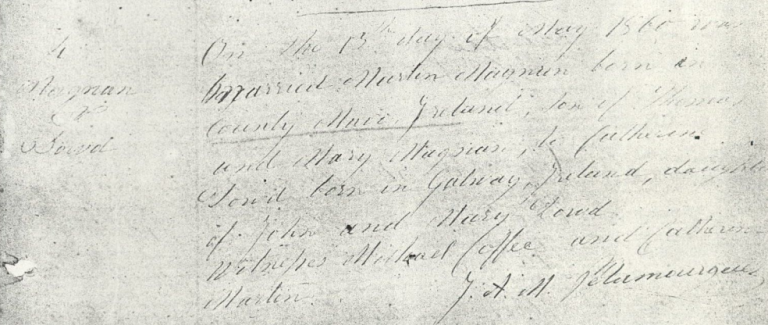 4
Magnan
&
Dowd
On the 13th day of May 1860 were
married Martin Magnan born in
County Mayo Ireland, son of Thomas
and Mary Magnan, to Catherine
Dowd born in Galway, Ireland, daughter
of John and Mary Dowd
Witnesses Michael Coffee and Catheren
Martin.
J. A. M.